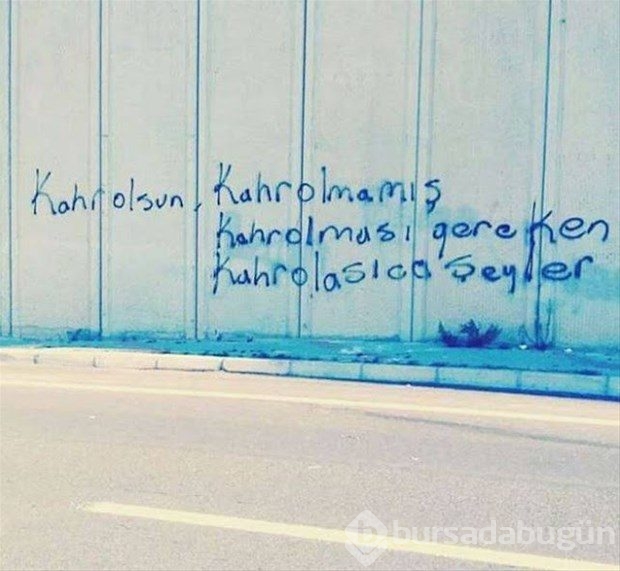 Kahrolsun, Kahrolmamış
Kahrolması gereken
Kahrolasıca Şeyler
bursadabugün